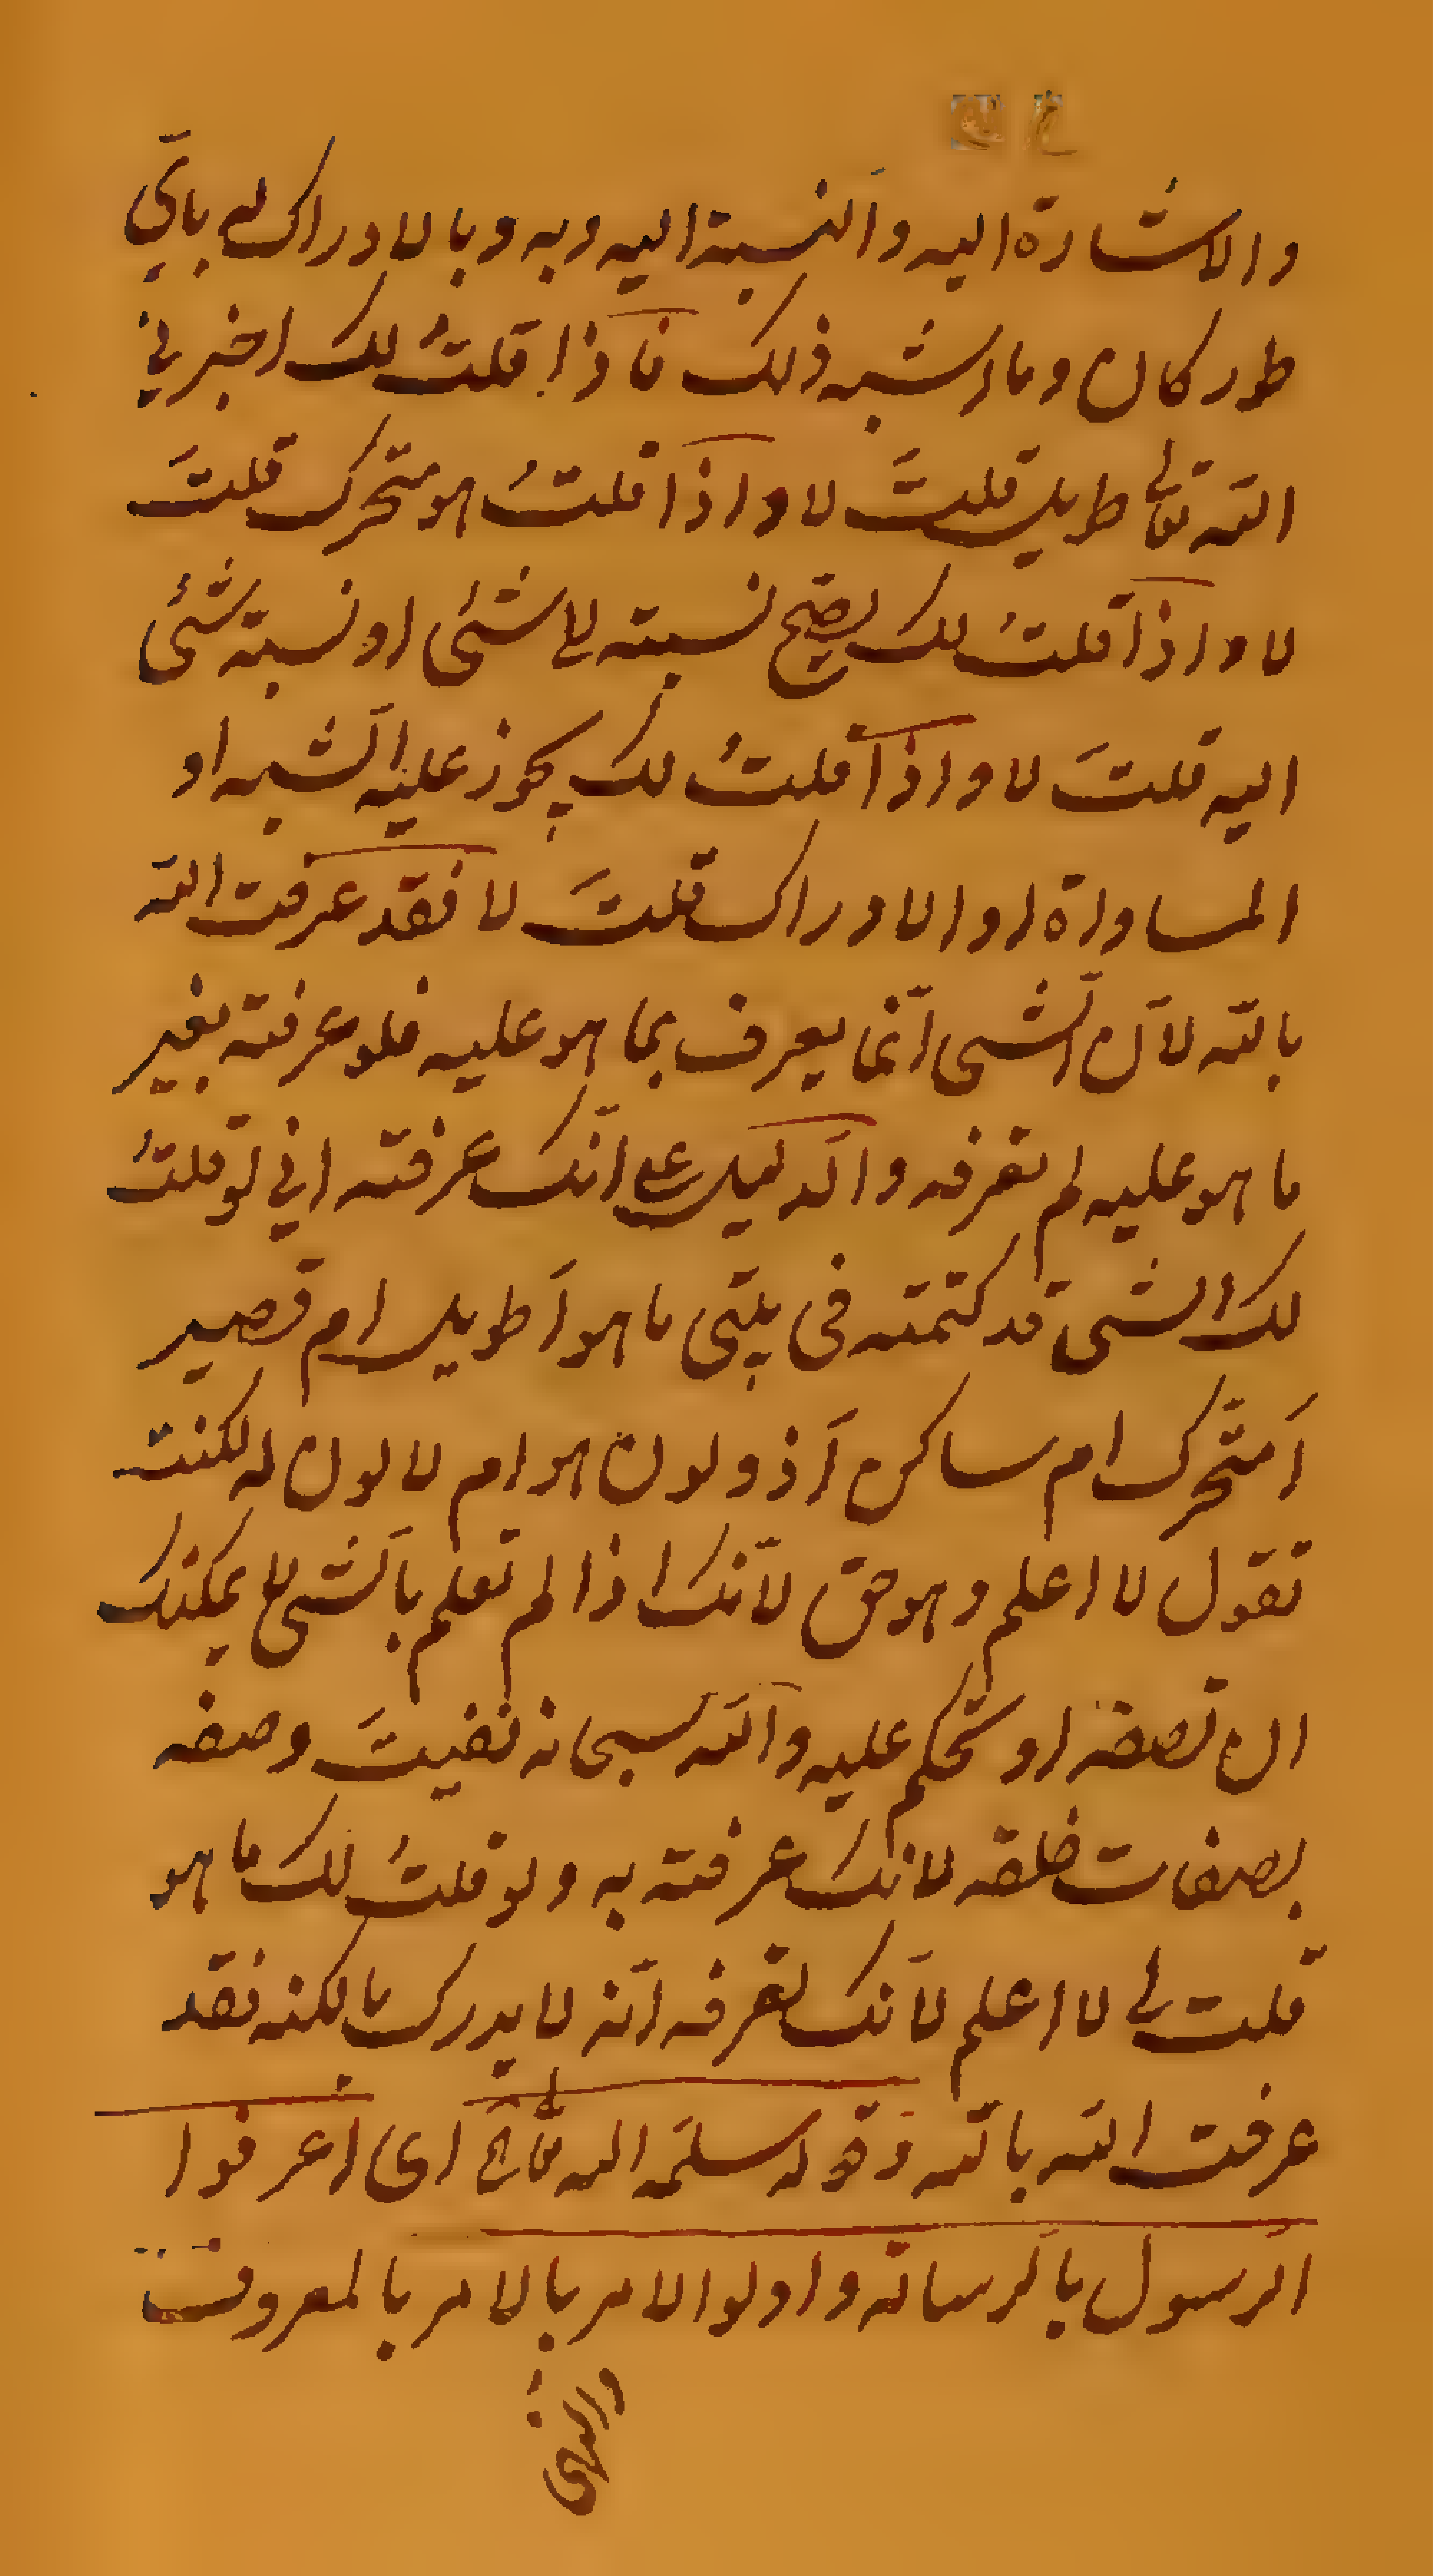 والاشارة اليه والنسبة اليه وبه وبالادراك له باي
طور كان وما اشبه ذلك فاذا قلتُ لك اخبرني
الله تعالى طويل قلتَ لا واذا قلتُ هو متحرك قلتَ
لا واذا قلتُ لك يصح نسبته الى شئ او نسبة شئ
اليه قلتَ لا واذا قلتُ لك يجوز عليه الشبه او
المساواة او الادراك قلتَ لا فقد عرفت الله
بالله لانّ الشئ انّما يعرف بما هو عليه فلو عرفته بغير
ما هو عليه لم تعرفه والدليل على انّك عرفته اني لو قلتُ
لك الشئ قد كتمته في بيتي ما هو أطويل ام قصير
أمتحرّك ام ساكن أذو لون هو ام لا لون له لكنت
تقول لا اعلم وهو حق لانّك اذا لم تعلم بالشئ لا يمكنك
ان تصفه او تحكم عليه والله سبحانه نفيتَ وصفه
بصفات خلقه لانك عرفته به ولو قلتُ لك ما هو
قلت لي لا اعلم لانّك تعرفه انّه لا يدرك بالكنه فقد
عرفت الله بالله وقوله سلّمه الله تعالى اى اعرفوا
الرسول بالرسالة واولوا الامر بالامر بالمعروف
والنهى